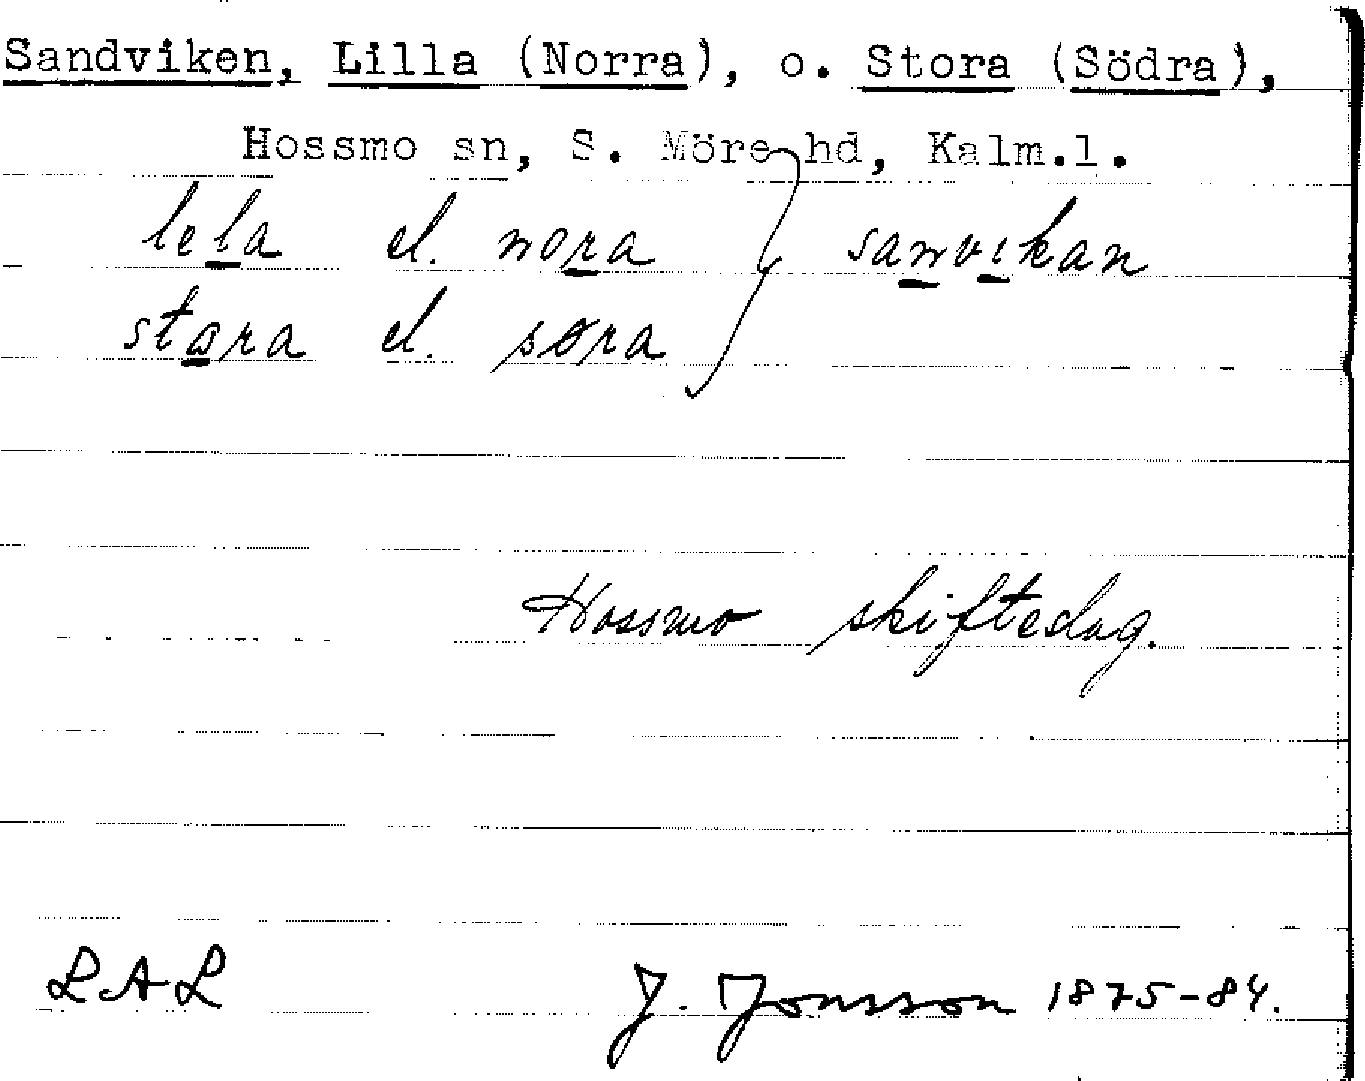 Sandviken, Lilla (Norra), o. Stora (Södra),
Hossmo sn, S. Möre hd, Kalm.l.
lela el. nora } sanvikan
stora el. søra
Hossmo skiftedag.
LAL J. Jonsson 1875-84.